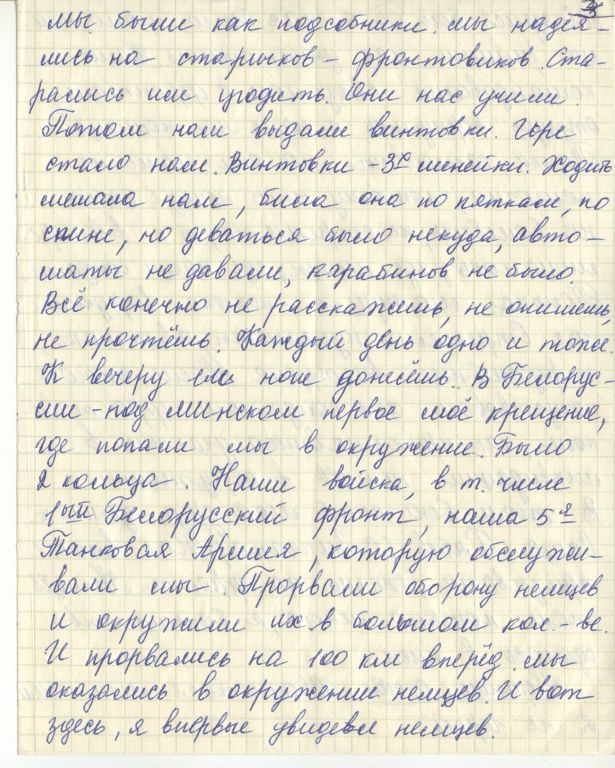 Мы были как подсобники. Мы надея-
лись на старичков – фронтовиков. Ста-
рались им угодить. Они нас учили.
Потом нам выдали винтовки. Горе
стало нам. Винтовки – 3х линейки. Ходить
мешала нам, била она по пяткам, по
спине, но деваться было некуда, авто-
маты не давали, карабинов не было.
Всё конечно не расскажешь, не опишешь,
не прочтёшь. Каждый день одно и тоже.
К вечеру еле ноги донесёшь. В Белорус-
сии – под Минском первое моё крещение,
где попали мы в окружение. Было
2 кольца. Наши войска, в т. числе
1ый Белорусский фронт, наша 5я
Танковая Армия, которую обслужи-
вали мы. Прорвали оборону немцев
и окружили их в большом кол.-ве.
И прорвались на 100 км вперёд. Мы
оказались в окружении немцев. И вот
здесь, я впервые увидела немцев.